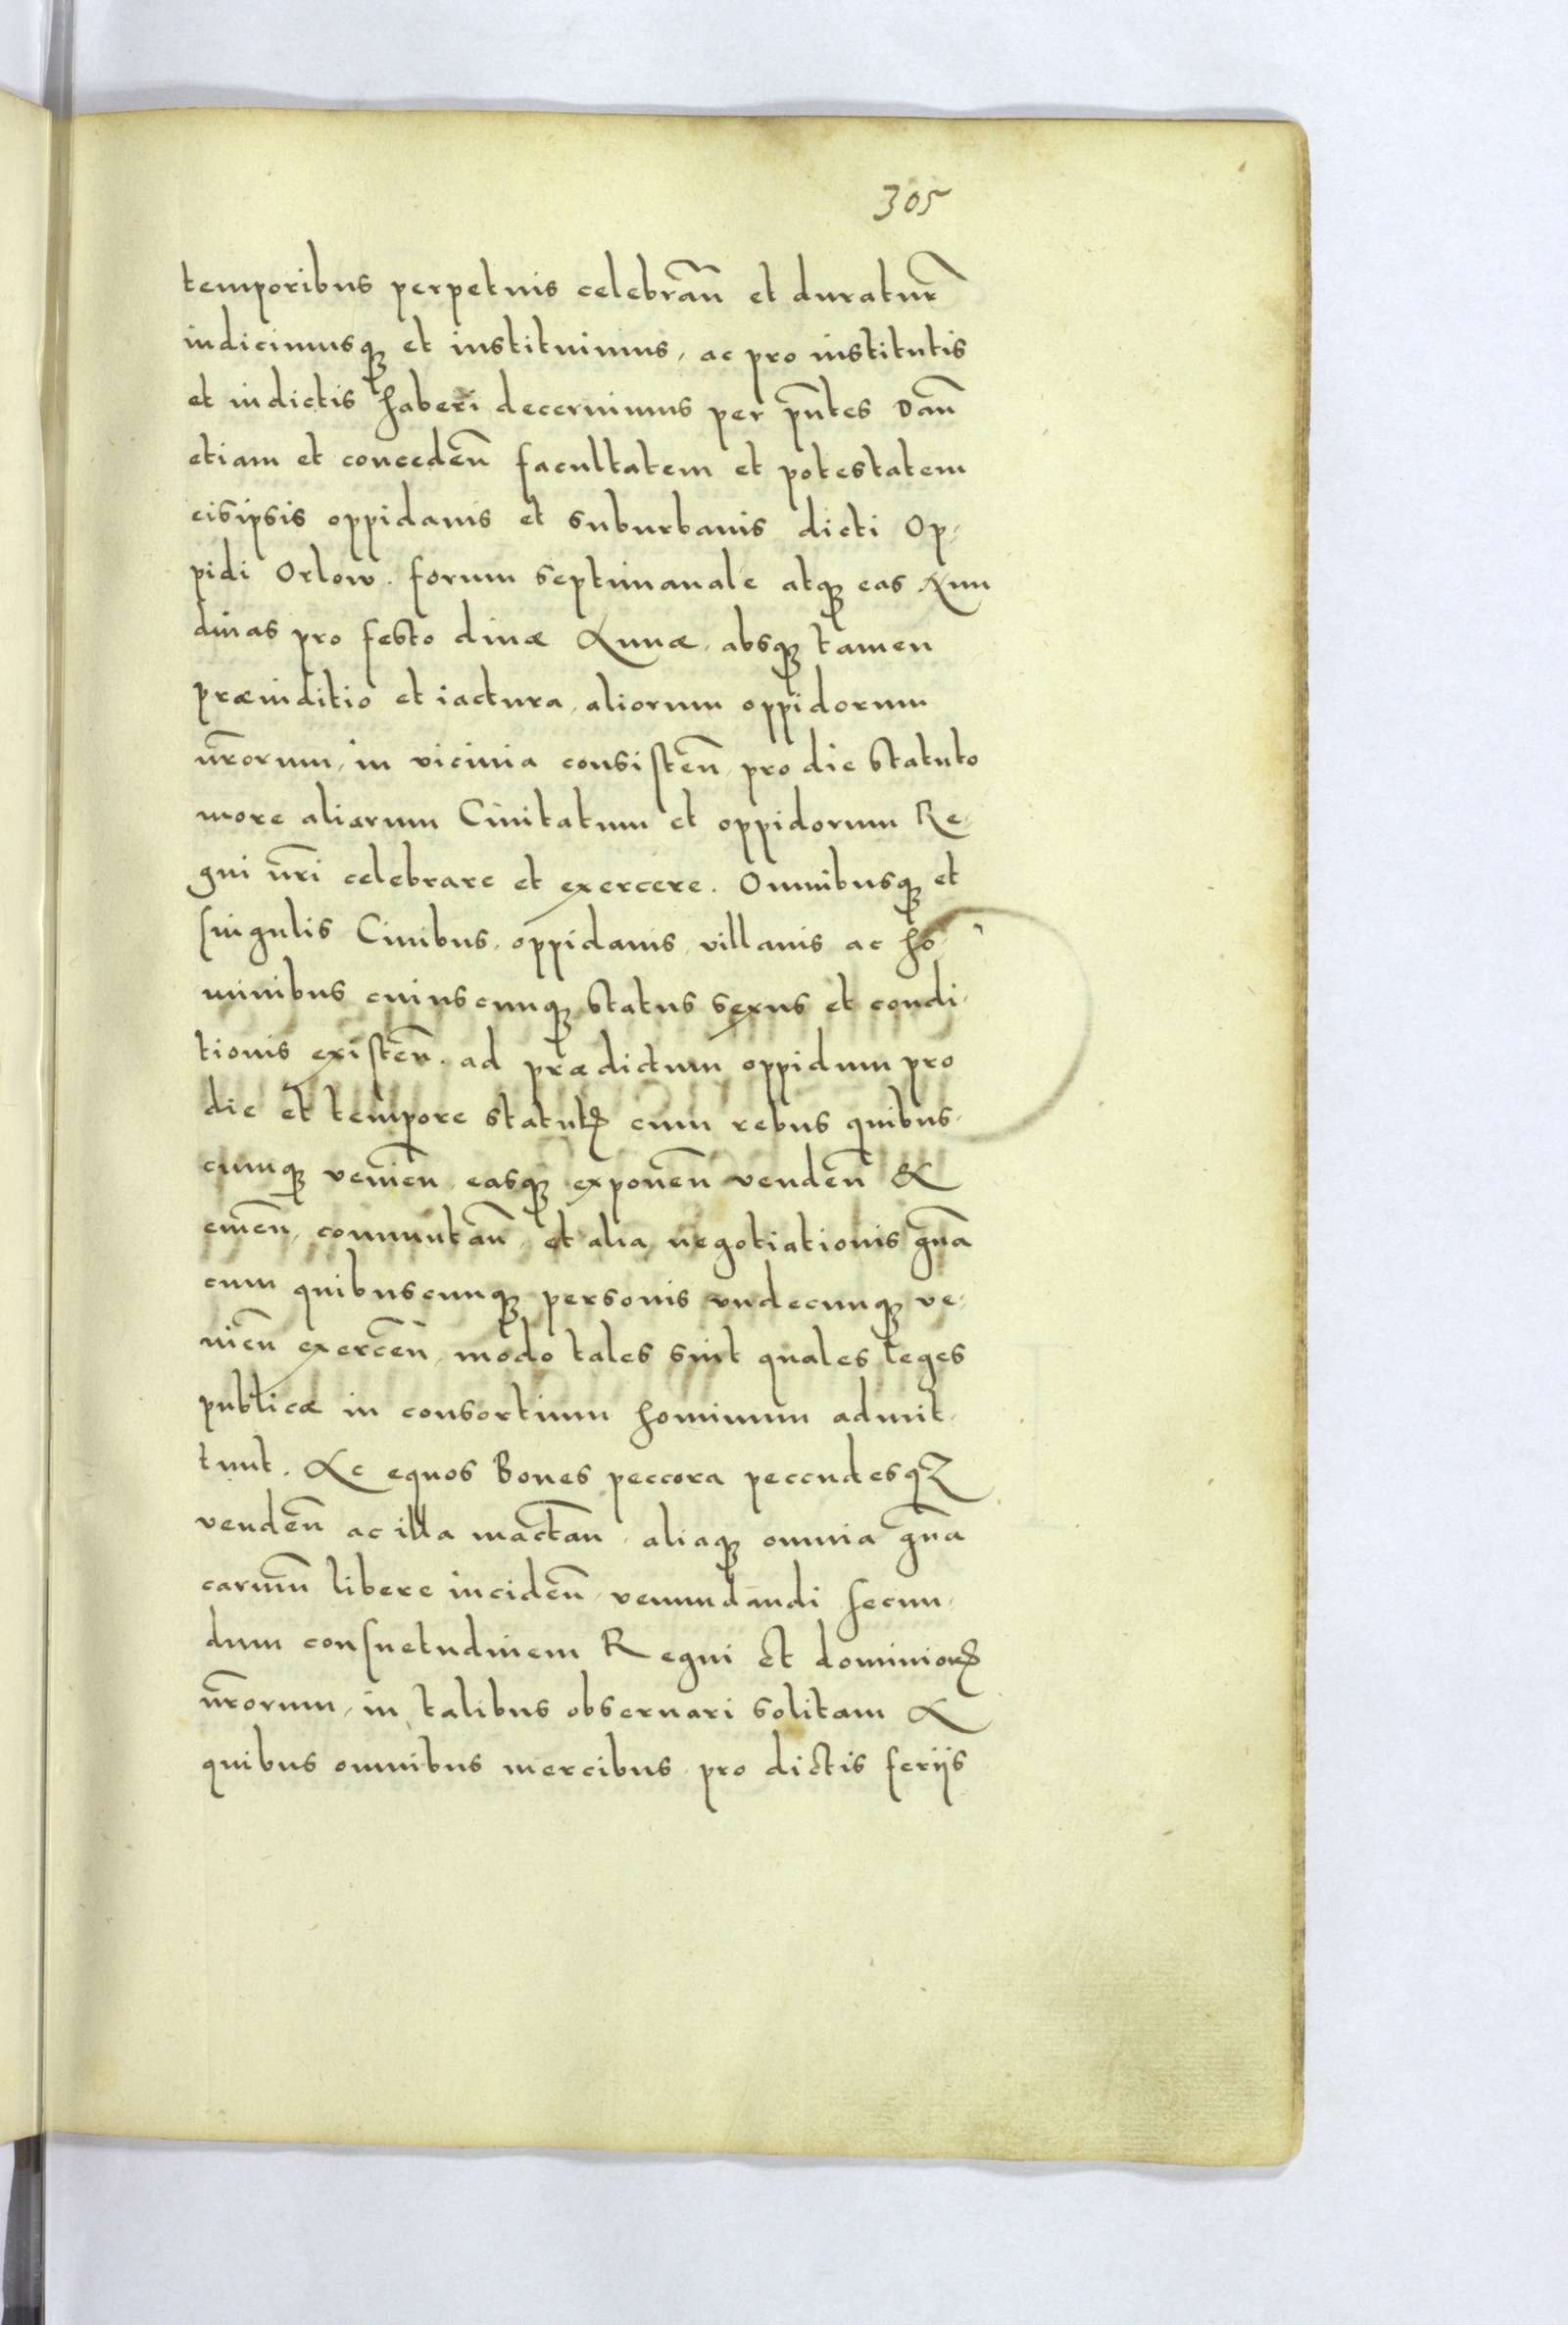 305
temporibus perpetuis celebrañ et duratur̃
indicimusqȝ et instituimus, ac pro institutis
et indictis haberi decernimus per pñtes Dañ
etiam et conceden̄ facultatem et potestatem
eisipsis oppidanis et suburbanis dicti Op-
pidi Orlow. forum septimanale atqȝ eas Nun
dinas pro festo divæ Annæ, absqȝ tamen
præiuditio et iactura, aliorum oppidorum
nr̃orum, in vicinia consisten̄, pro die statuto
more aliarum Ciuitatum et oppidorum Re-
gni nr̃i celebrare et exercere. Omnibusqȝ et
singulis Ciuibus, oppidanis, villanis ac ho-
minibus cuiuscunqȝ status sexus et condi-
tionis existen̄. ad prædictum oppidum pro
die et tempore statutꝭ cum rebus quibus-
cumqȝ venien̄, easqȝ exponen̄ venden̄ &
emen̄, commutan̄, et alia negotiationis gña
cum quibuscunqȝ personis vndecunqȝ ve-
nien̄ exercen̄, modo tales sint quales leges
publicæ in consortium hominum admit-
tunt. Ac equos Boues peccora peccudesqȝ
venden̄ ac illa mactan̄, aliaqȝ omnia gña
carnium libere inciden̄, venundandi secun-
dum consuetudinem Regni et dominioꝝ
nr̃orum, in talibus obseruari solitam A
quibus omnibus mercibus pro dictis ferijs